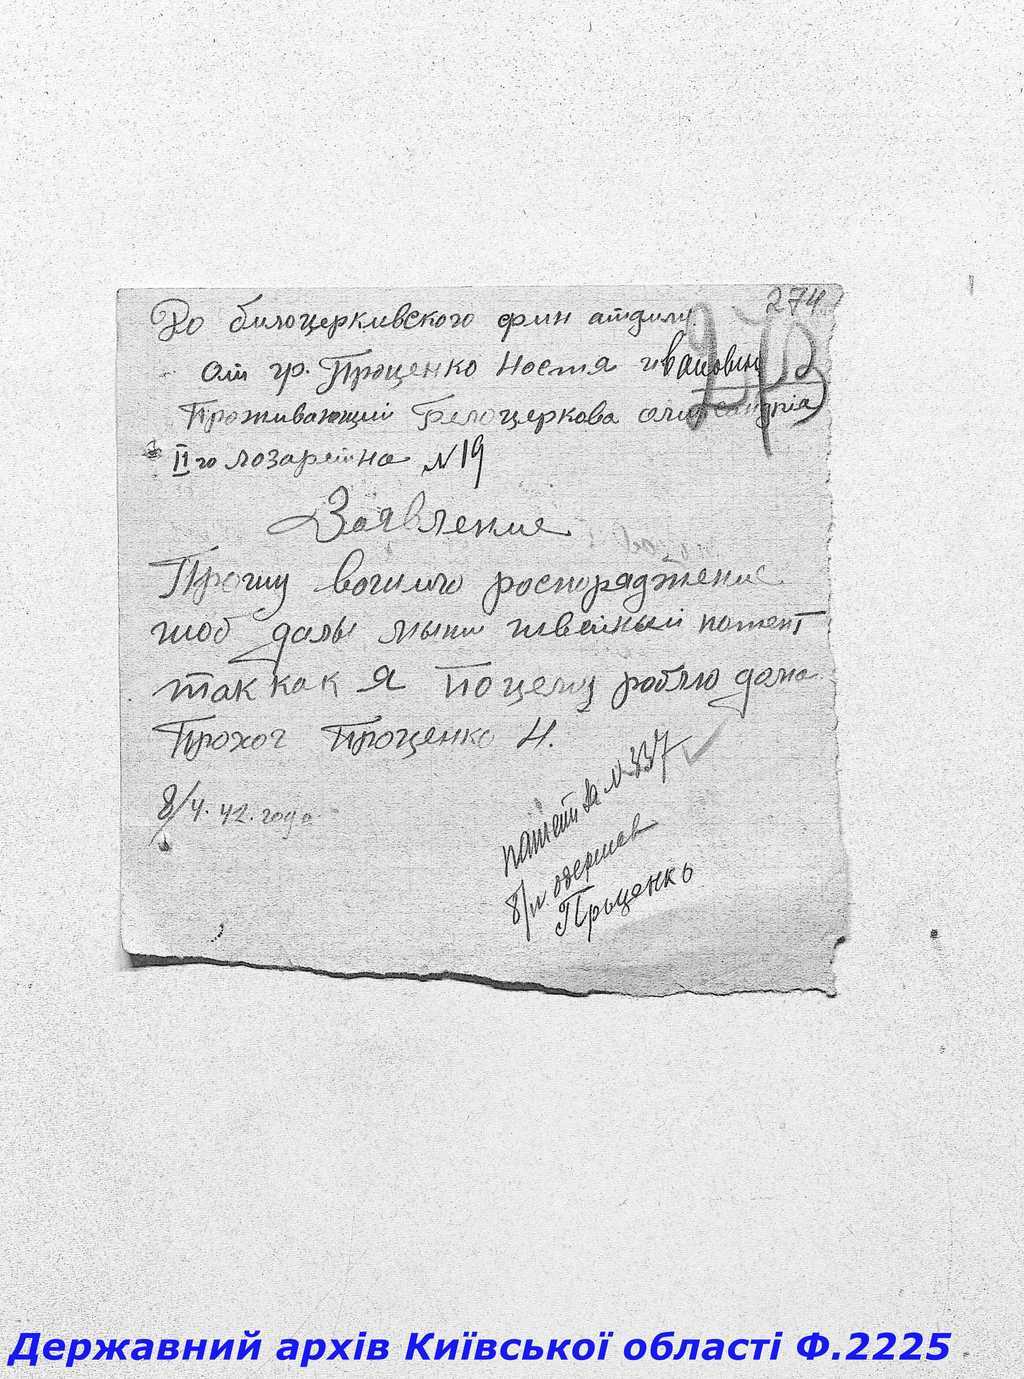 274
До билоцеркивского фин атдилу
от гр. Проценко Ностя ивановин
Проживающий Белоцеркова
IIго лозаретна N 19
Заявление
Прошу вошого роспоряджение
шоб далы мыни швейный потент
так как я По цему роблю дома
Прохог Проценко Н.
8/4. 42. года
патент за N 337
8/IV. одержав
Проценко
Державний архів Київської області Ф.2225